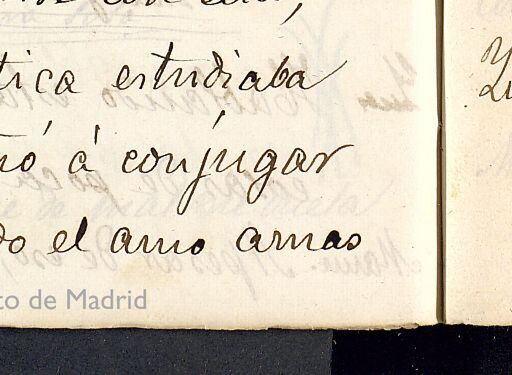 tica estudiaba
ñó á conjugar
do el amo amas
to de Madrid